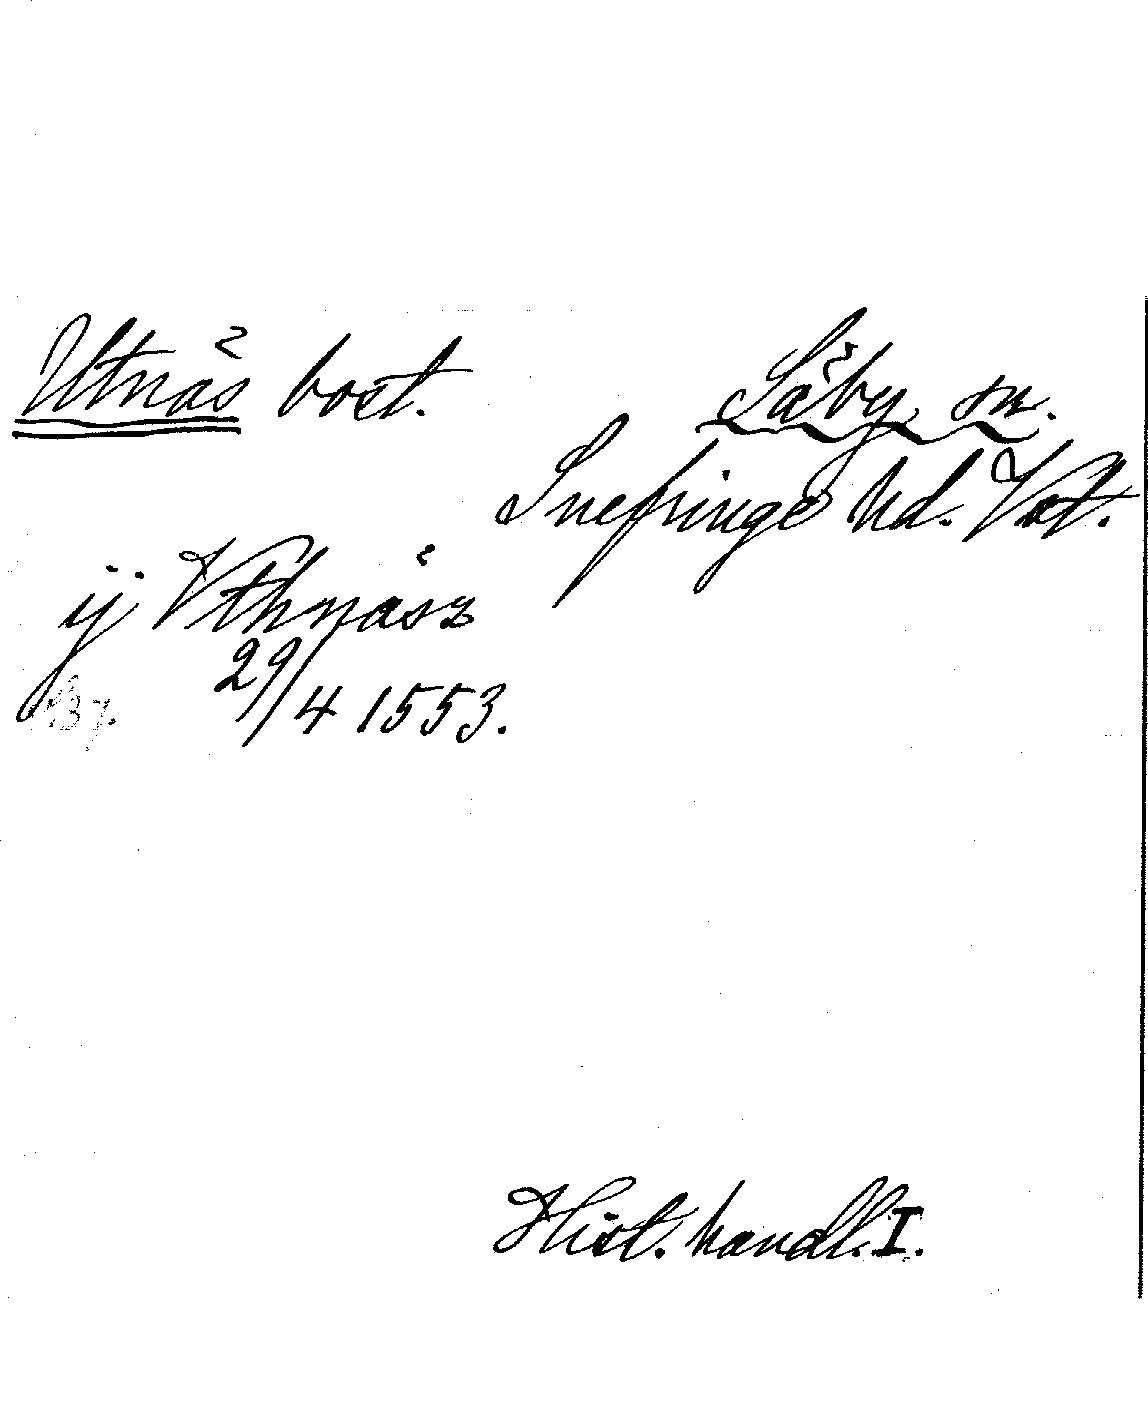 Utnäs bost.
Säby sn.
Snefringe hd. Vstm.
ij Vthnäsz
29/4 1553.
Hist. handl. I.